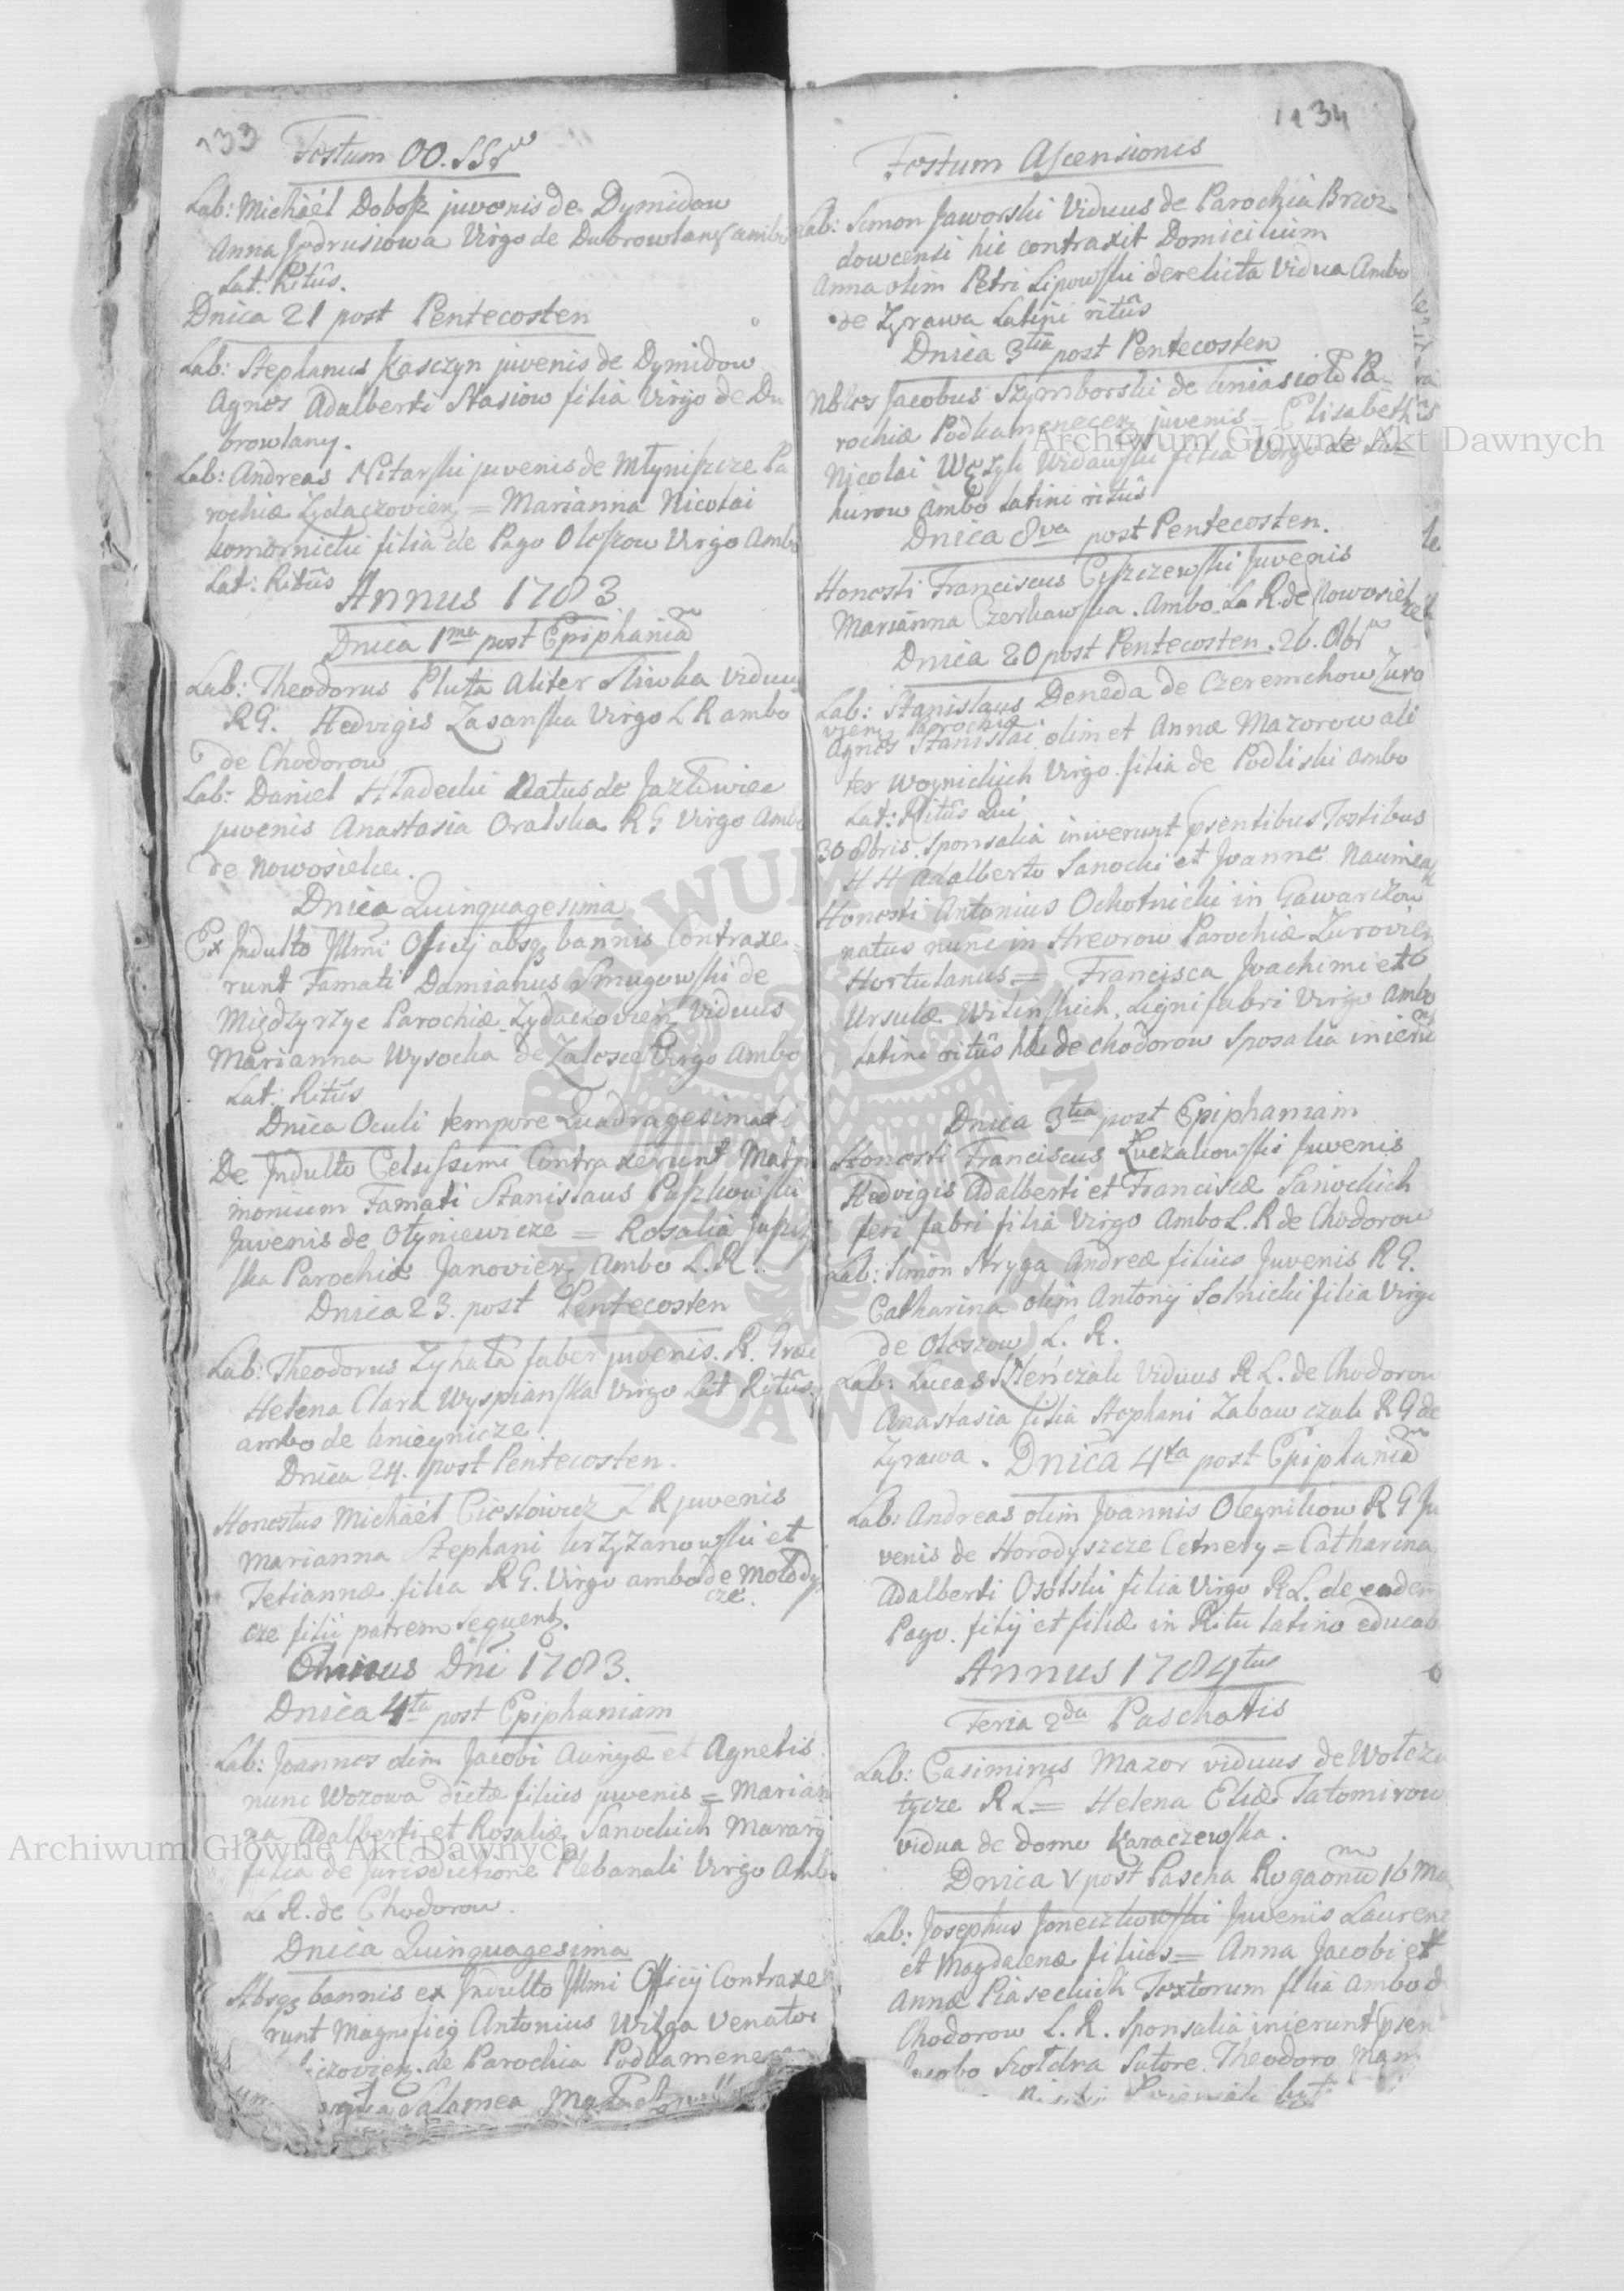 133
Festum OO. SSr
Lab: Michaël Dobosz juvenis de Dymidow
Anna Jędrusiowa Virgo de Dubrowlany ambo
Lat. Ritûs.
Dnica 21 post Pentecosten
Lab: Stephanus Kasczyn juvenis de Dymidow
Agnes Adalberti Stasiow filia Virgo de Du
browlany.
Lab: Andreas Nitarski juvenis de Młyniszcze Pa
rochiæ Zydaczovien = Marianna Nicolai
komornicki filia de Pago Oloszow Virgo Ambo
Lat: Ritûs
Annus 1783
Dnica 1ma post Epiphania
Lab: Theodorus Pluta Aliter Sliwka Viduus
RG. Hedvigis Zasanska Virgo L R ambo
de Chodorow
Lab: Daniel Hładecki Natus de Jazłowiec
juvenis Anastasia Oralska RG Virgo Ambo
de Nowosielce.
Dnica Quinquagesima
Ex Indulto Illmi Officij absq bannis Contraxe=
runt Famati Damianus Smugowski de
Międzyrzyc Parochiæ Zydaczovien Viduus
Marianna Wysocka de Zalosce Virgo Ambo
Lat: Ritûs
Dnica Oculi tempore Quadragesimæ
De Indulto Celsissimi Contraxerunt Matri
monium Famati Stanislaus Paszkowski
Juvenis de Otyniewicze = Rosalia
ska Parochiæ Janovien Ambo L. R.
Dnica 23. post Pentecosten
Lab: Theodorus Zyhała faber juvenis. R. Græc
Helena Clara Wyspianska Virgo Lat Ritûs.
ambo de kniegnicze.
Dnica 24. post Pentecosten.
Honestus Michaël Ciesłowicz L R juvenis
Marianna Stephani krzyzanowski et
Tetiannæ filia RG. Virgo ambo de Mołody
cze filii patrem sequent. cze.
Annus Dni 1783.
Dnica 4ta post Epiphaniam
Lab: Joannes olim Jacobi et Agnetis
nunc Wozowa dictæ filius juvenis = Marian
na Adalberti et Rosaliæ Sanockich Murarij
filia de Jurisdictione Plebanali Virgo Ambo
La R. de Chodorow.
Dnica Quinquagesima
Absq bannis ex Indulto Illmi Officij Contraxe
runt Magnificij Antonius Wilga Venator
de Parochia Podkamene
Salamea
1134
Festum Ascensionis
Lab: Simon Jaworski Viduus de Parochia Brzoz
dowcensi hic contraxit Domicilium
Anna olim Petri Lipowski derelicta Vidua Ambo
de Zyrawa Latini ritûs
Dnica 3tia post Pentecosten
Nbles Jacobus Szymborski de kniasioło Pa=
rochiæ Podkamenecen juvenis = Elisabetha
Nicolai Wężyk Widawski filia Virgo de La=
hurow Ambo Latini ritûs
Dnica 8va post Pentecosten.
Honesti Franciscus Cyszczewski Juvenis
Marianna Czerkawska. Ambo. La R. de Nowosielce
Dnica 20 post Pentecosten. 26. 8br
Lab: Stanislaus Deneda de Czeremchow Zuro
vien Parochiæ
Agnes Stanislai olim et Annæ Mazorow ali
ter Woynickich Virgo filia de Podliski ambo
Lat: Ritûs Qui
30 8bris. Sponsalia iniverunt psentibus Testibus
H H Adalberto Sanocki et Joanne
Honesti Antonius Ochotnicki in Gawarzow
natus nunc in Hreorow Parochiæ Zurovien
Hortulanus = Francisca Joachimi et
Ursulæ Wilinskich. Lignifabri Virgo Ambo
Latini ritûs de Chodorow Sposalia inierunt
Dnica 3tia post Epiphaniam
Honesti Franciscus Luczakowski Juvenis
Hedvigis Adalberti et Franciscæ Sanockich
feri fabri filia Virgo Ambo L. R de Chodorow
Lab: Simon Stryga Andreæ filius Juvenis R G.
Catharina olim Antonij Solnicki filia Virgo
de Oloszow L. R.
Lab: Lucas Stenczak Viduus R L. de Chodorow
Anastasia filia Stephani Zabawczak RG de
Zyrawa. Dnica 4ta post Epiphania
Lab: Andreas olim Joannis Oleynikow R G Ju
venis de Horodyszcze Cetnery = Catharina
Adalberti Osolski filia Virgo RL. de eadem
Pago. filij et filiæ in Ritu latino educab
Annus 1784tus
Feria 2da Paschatis
Lab: Casimirus Mazor viduus de Wołcza
tycze R L = Helena Eliæ Tatomirow
vidua de domo Karaczewska.
Dnica V post Pascha Rogaonu 16 Ma
Lab: Josephus Joneczkowski Juvenis Laurenc
et Magdalenæ filius = Anna Jacobi et
Annæ Piaseckich Textorum filia Ambo d
Chodorow L. R. Sponsalia inierunt psen
Szoldra Sutore. Theodoro Mam
Archiwum Główne Akt Dawnych
Archiwum Główne Akt Dawnych
ARCHIWUM GŁÓWNE AKT DAWNYCH